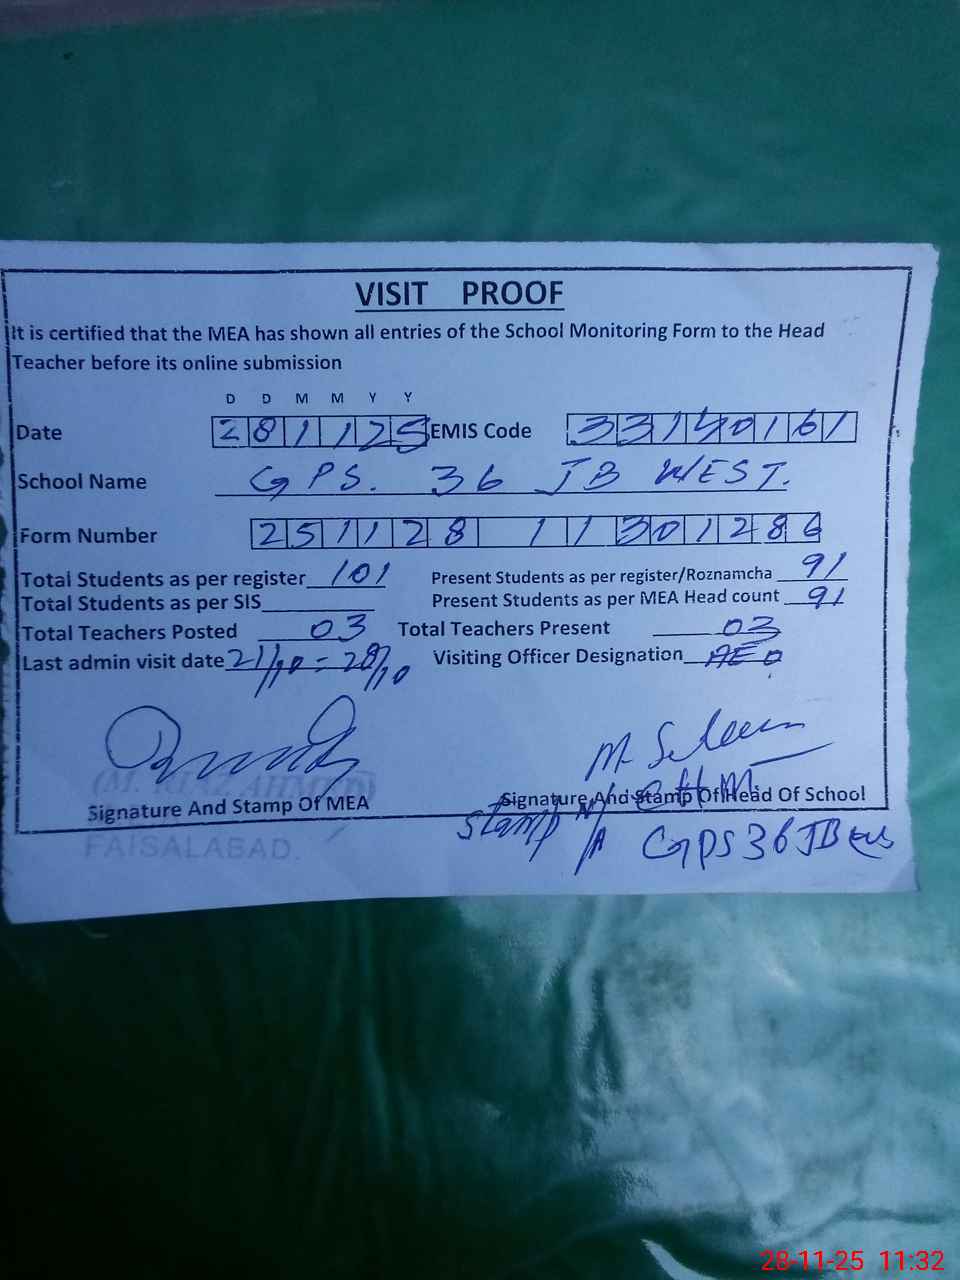 VISIT PROOF
It is certified that the MEA has shown all entries of the School Monitoring Form to the Head
Teacher before its online submission
D D M M Y Y
Date 281125 EMIS Code 33140161
School Name GPS. 36 JB WEST.
Form Number 251128 11301286
Total Students as per register 101 Present Students as per register/Roznamcha 91
Total Students as per SIS Present Students as per MEA Head count 91
Total Teachers Posted 03 Total Teachers Present 03
Last admin visit date 21/10 = 28/10 Visiting Officer Designation AEO
M. Saleem
(M. RIAZ AHMED)
Signature And Stamp Of MEA Signature And Stamp Of Head Of School
Stamp N/A GPS 36 JB
FAISALABAD.
28-11-25 11:32